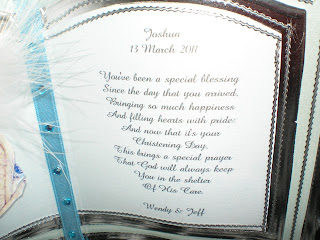 Joshua
13 March 2011
You've been a special blessing
Since the day that you arrived,
Bringing so much happiness
And filling hearts with pride.
And now that it's your
Christening Day,
This brings a special prayer
That God will always keep
You in the shelter
Of His Care.
Wendy & Jeff